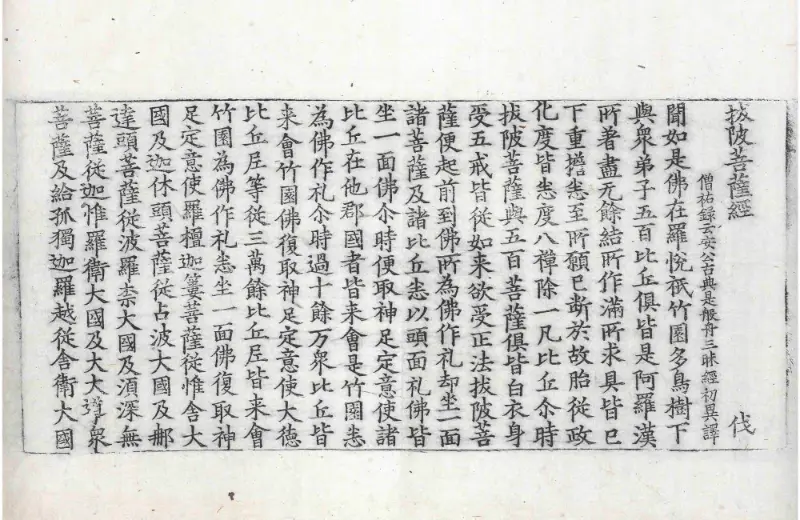 拔陂菩薩經
伐
僧祐錄云安公古典是般舟三昧經初異譯
聞如是佛在羅悅祇竹園多鳥樹下
與衆弟子五百比丘俱皆是阿羅漢
所著盡无餘結所作滿所求具皆已
下重擔悉至所願已斷於故胎從政
化度皆悉度八禪除一凡比丘尒時
拔陂菩薩與五百菩薩俱皆白衣身
受五戒皆從如来欲受正法拔陂菩
薩便起前到佛所為佛作礼却坐一面
諸菩薩及諸比丘悉以頭面礼佛皆
坐一面佛尒時便取神足定意使諸
比丘在他郡國者皆来會是竹園悉
為佛作礼尒時過十餘万衆比丘皆
来會竹園佛復取神足定意使大德
比丘尼等從三萬餘比丘尼皆来會
竹園為佛作礼悉坐一面佛復取神
足定意使羅檀迦簍菩薩從惟舍大
國及迦休頭菩薩從占波大國及郍
達頭菩薩從波羅柰大國及湏深無
菩薩從迦惟羅衛大國及大大導衆
菩薩及給孤獨迦羅越從舍衛大國